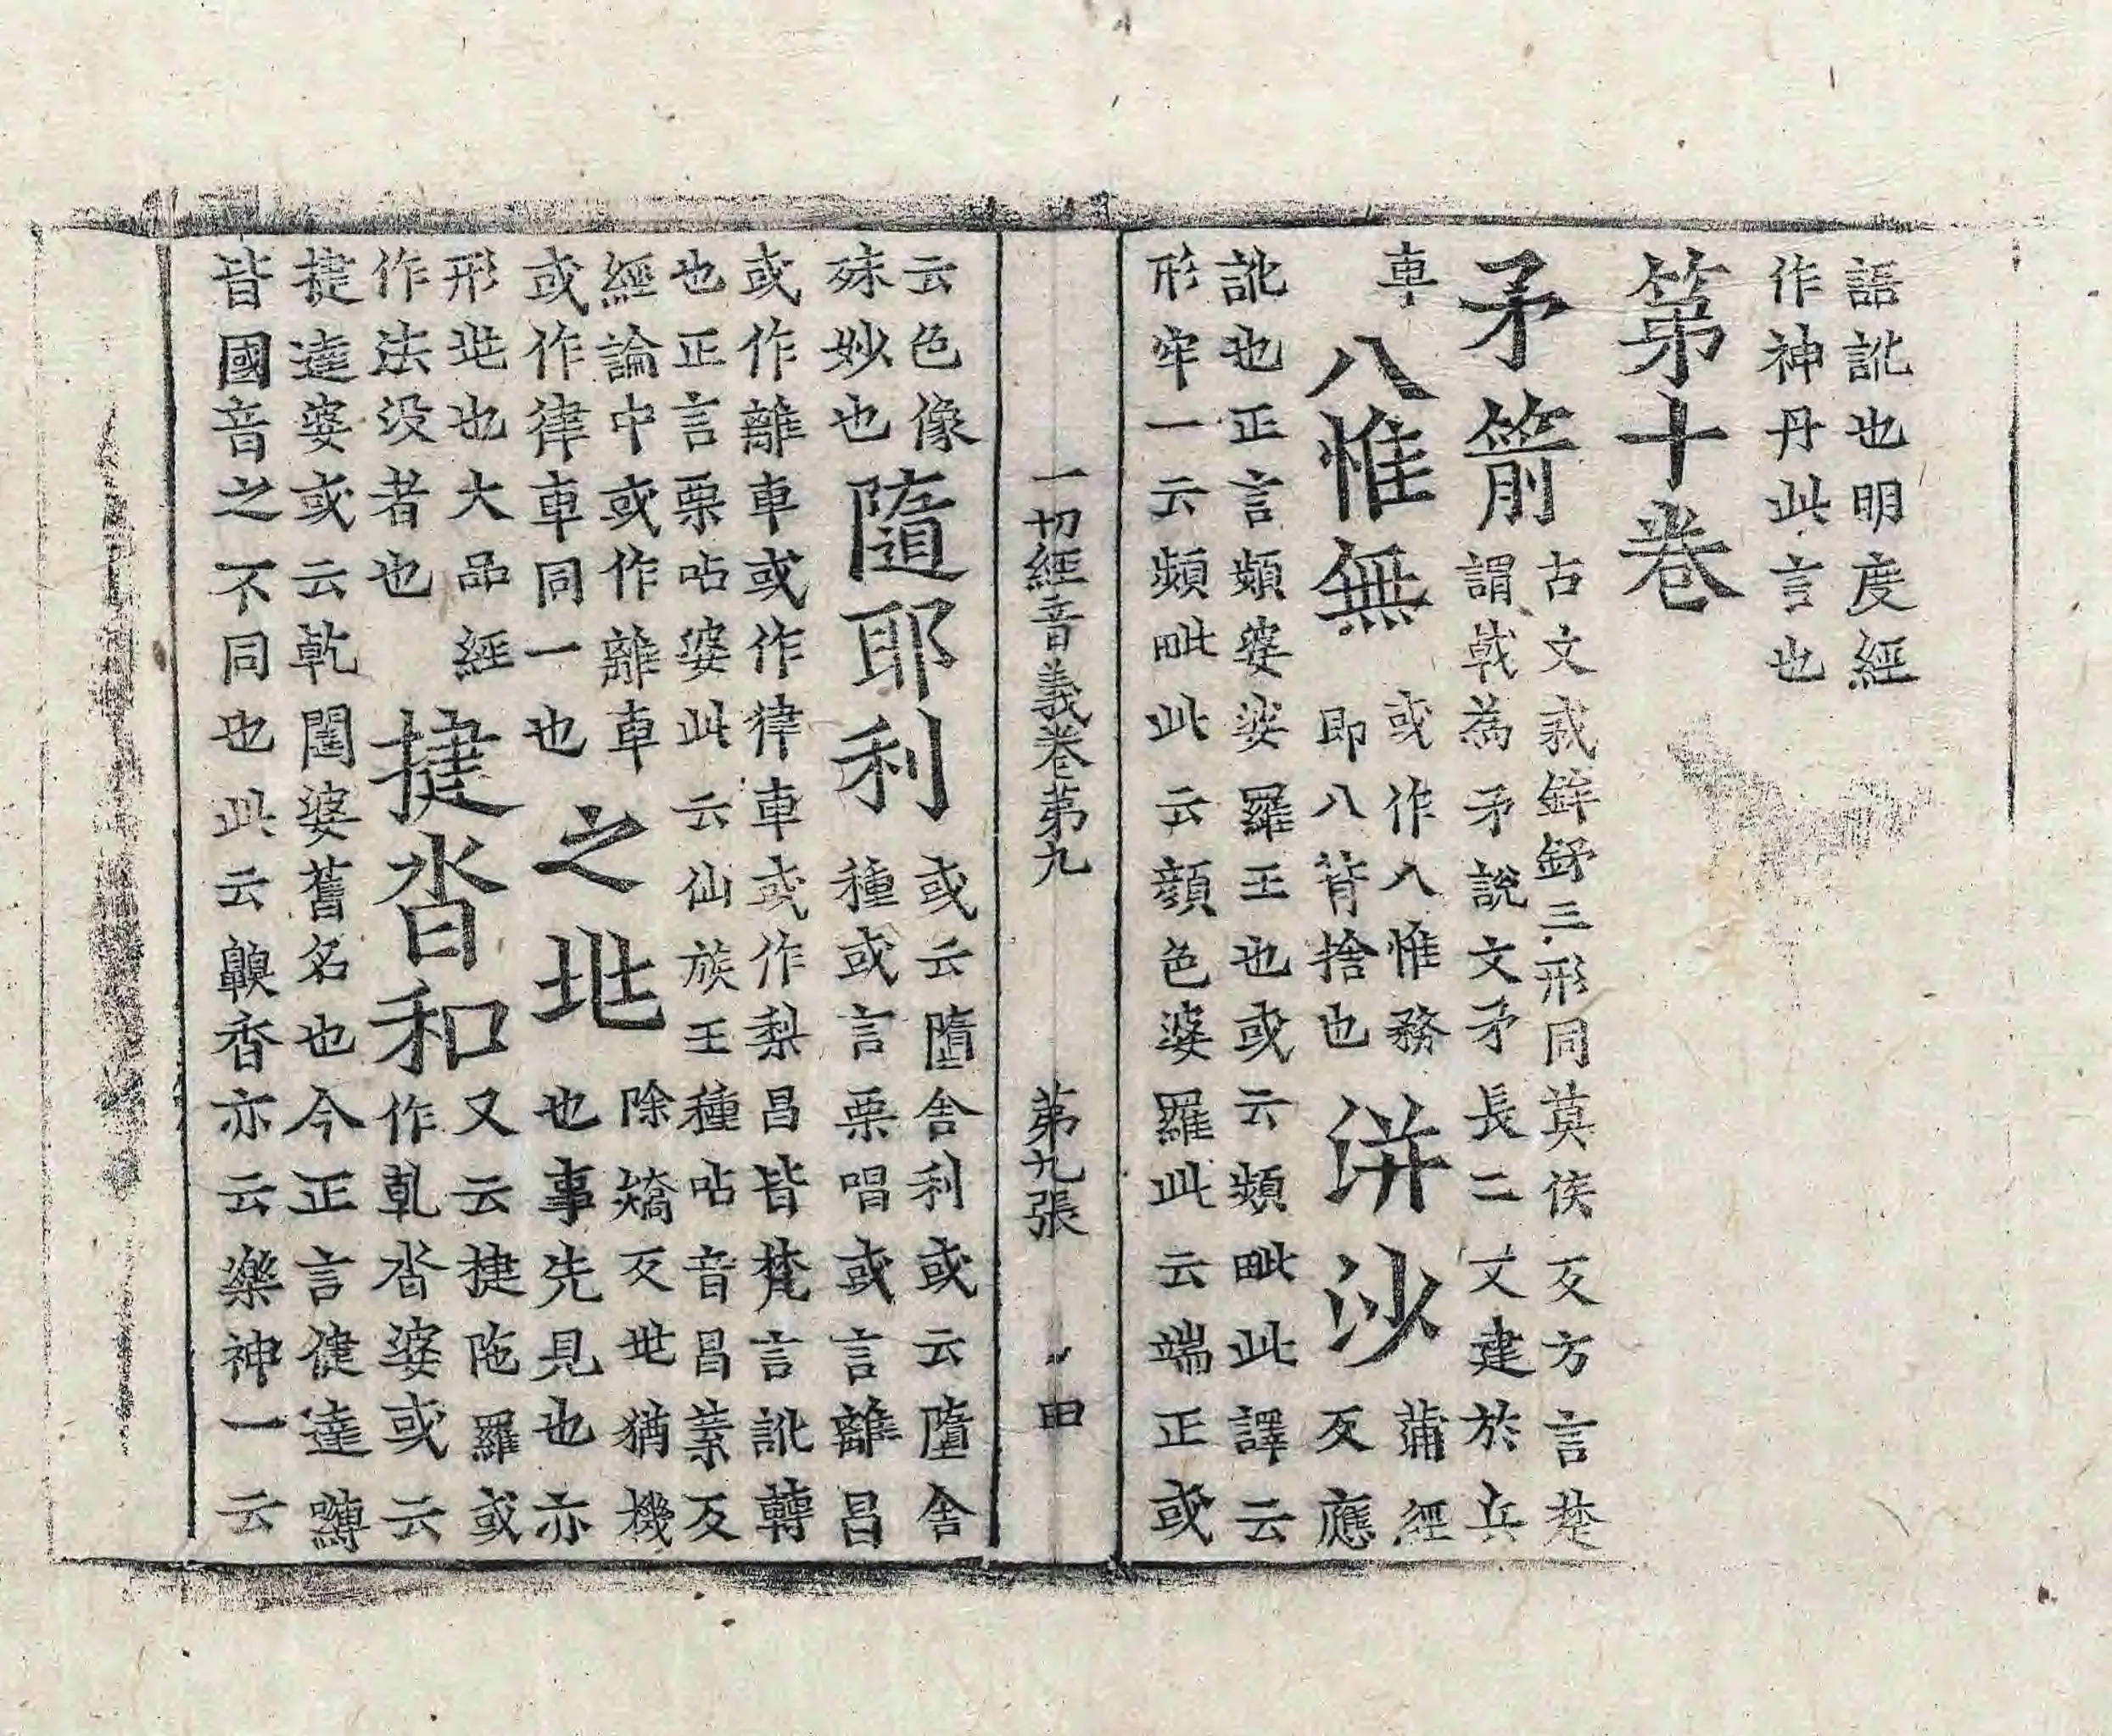 語訛也明度經
作神丹此言也
第十卷
矛箭
古文𢦧鉾𨥨三形同莫侯反方言楚
謂戟為矛說文矛長二丈建於兵
車
八惟無
或作八惟務
即八背捨也
洴沙
蒲經
反應
訛也正言頻婆娑羅王也或云頻毗此譯云
形牢一云頻毗此云顏色婆羅此云端正或
一切經音義卷第九 第九張 田
云色像
殊妙也
隨耶利
或云隨舍利或云隨舍
種或言栗唱或言離昌
或作離車或作律車或作梨昌皆梵言訛轉
也正言栗呫婆此云仙族王種呫音昌葉反
經論中或作離車
或作律車同一也
之兆
除矯反兆猶機
也事先見也亦
形兆也大品經
作法沒者也
揵沓和
又云揵陁羅或
作乹沓婆或云
揵達婆或云乹闥婆舊名也今正言健達嚩
皆國音之不同也此云齅香亦云樂神一云